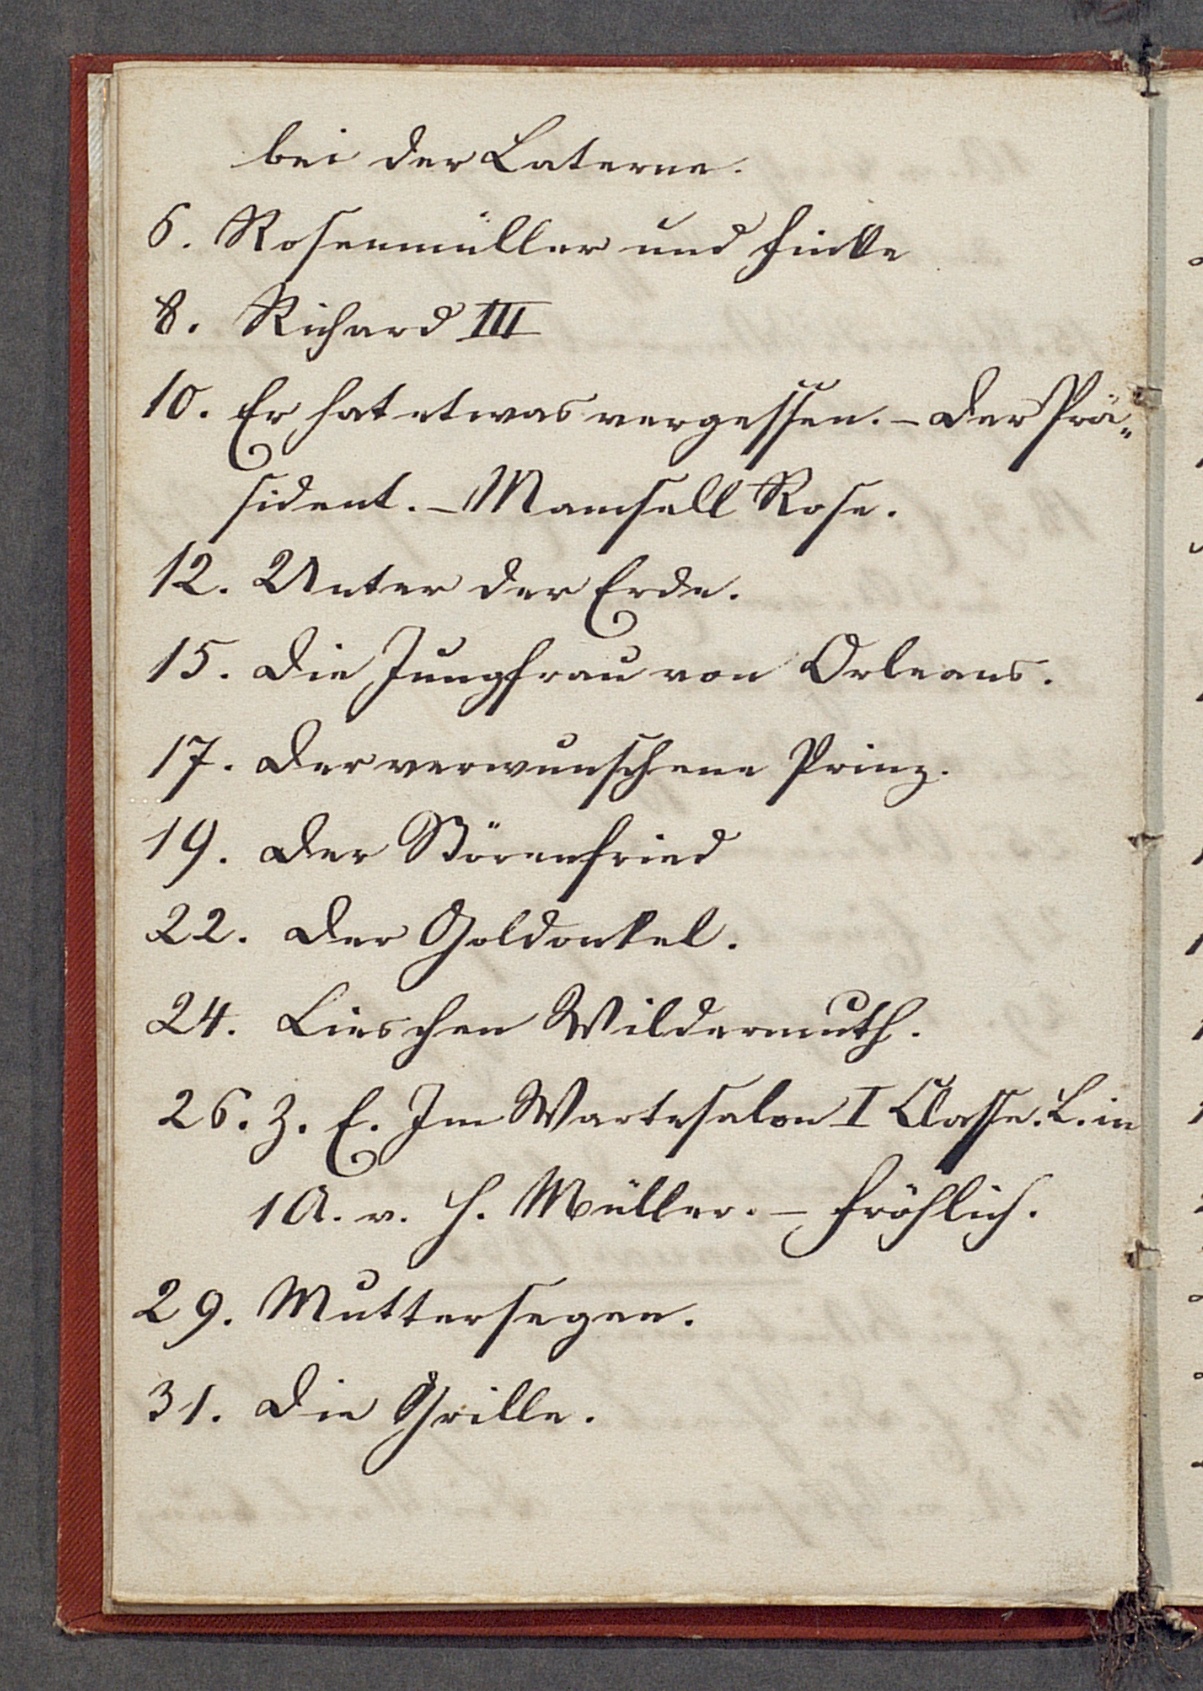 bei der Laterne.
6. Rosenmüller und Finke
8. Richard III
10. Er hat etwas vergessen. – Der Prä„
sident. – Mamsell Rose.
12. Unter der Erde.
15. Die Jungfrau von Orleans.
17. Der verwunschene Prinz.
19. Der Störenfried
22. Der Goldonkel.
24. Lieschen Wildermuth.
26. Z. E. Im Wartesalon I Classe. L. in
1 A. v. H. Müller. – Fröhlich.
29. Muttersegen.
31. Die Grille.